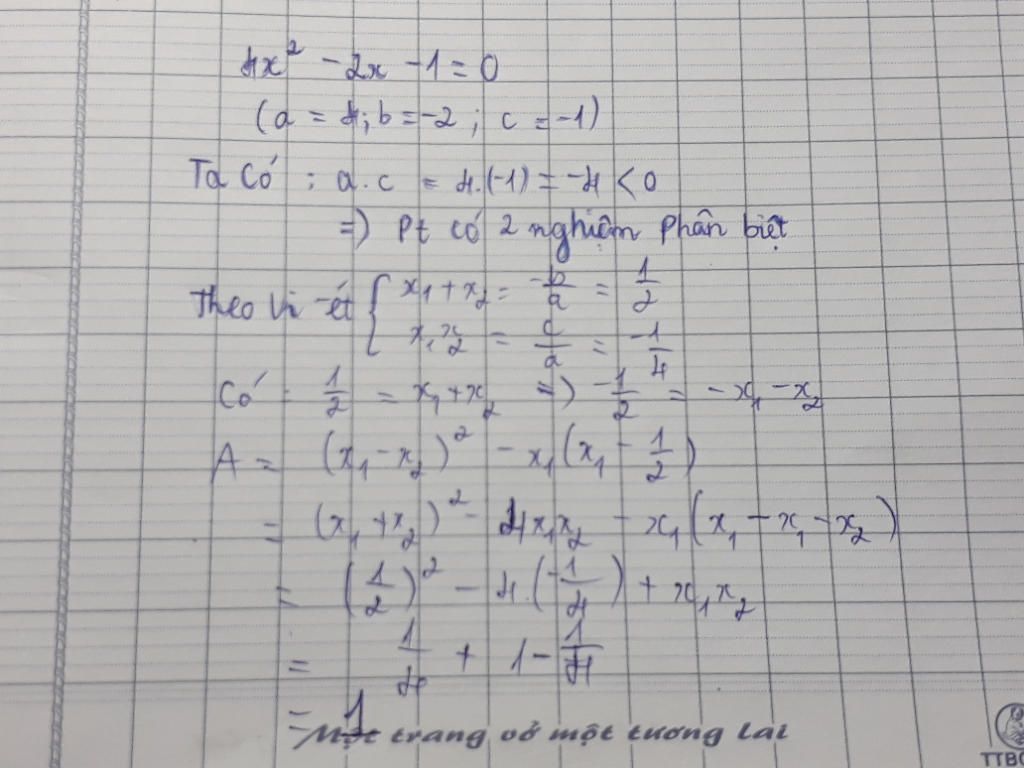 4x² - 2x - 1 = 0
(a = 4; b = -2; c = -1)
Ta có: a.c = 4.(-1) = -4 < 0
=> Pt có 2 nghiệm phân biệt
Theo vi-ét { x₁ + x₂ = -b/a = 1/2
x₁x₂ = c/a = -1/4
Có: 1/2 = x₁ + x₂ => -1/2 = -x₁ - x₂
A = (x₁ - x₂)² - x₁(x₁ - 1/2)
= (x₁ + x₂)² - 4x₁x₂ - x₁(x₁ - x₁ - x₂)
= (1/2)² - 4.(-1/4) + x₁x₂
= 1/4 + 1 - 1/4
= 1
Một trang vở một tương lai
TTBO